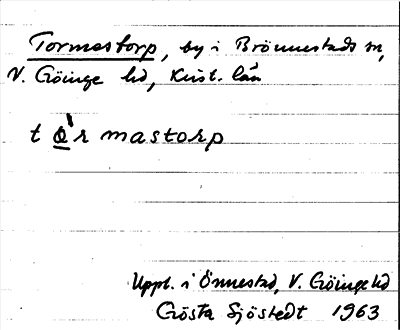 Tormestorp, by i Brönnestads sn,
V. Göinge hd, Krist. län
t ò̱r mastorp
Uppt. i Önnestad, V. Göinge hd
Gösta Sjöstedt 1963